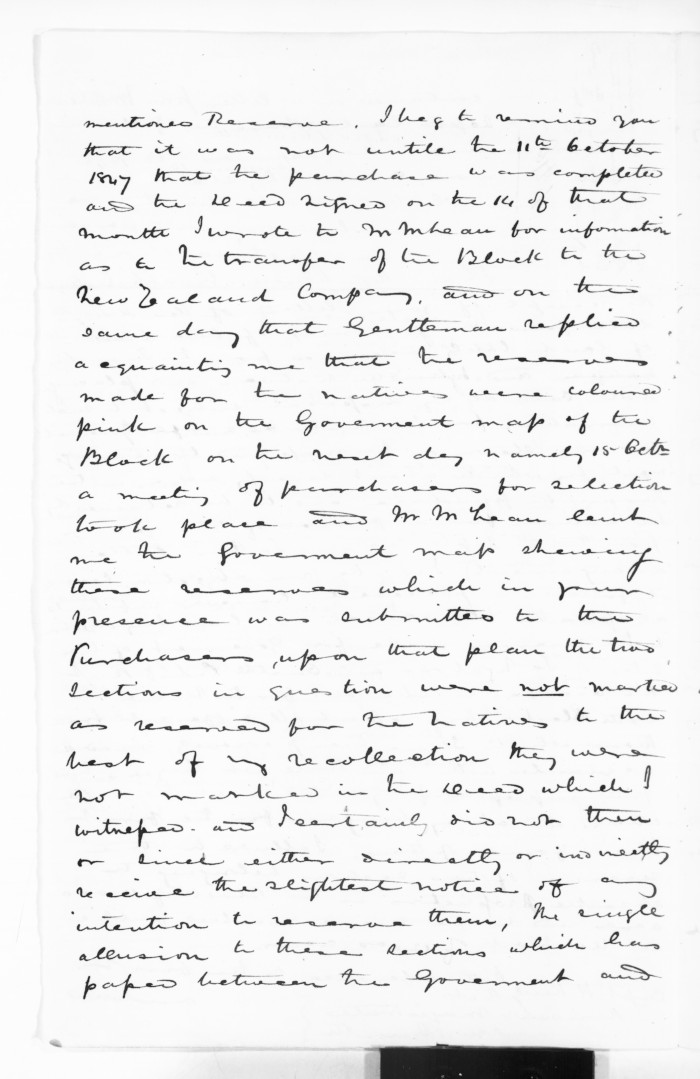 mentioned Reserve. I beg to remind you
that it was not untile the 11th October
1847 that the purchase was completed
and the deed signed on the 14 of that
month I wrote to Mr McLean for information
as to the transfer of the Block to the
New Zealand Company, and on the
same day that Gentleman replied
acquainting me that the reserves
made for the natives were coloured
pink on the Goverment map of the
Block on the next day namely 15 Octr
a meeting of purchasers for selection
took place and Mr McLean lent
me the Goverment map shewing
these reserves which in your
presence was submitted to the
Purchasers, upon that plan the two
sections in question were not marked
as reserved for the Natives to the
best of my recollection they were
not marked in the deed which I
witnessed. and I certainly did not then
or since either directly or indirectly
receive the slightest notice of any
intention to reserve them, The single
allusion to these sections which has
passed between the Goverment and